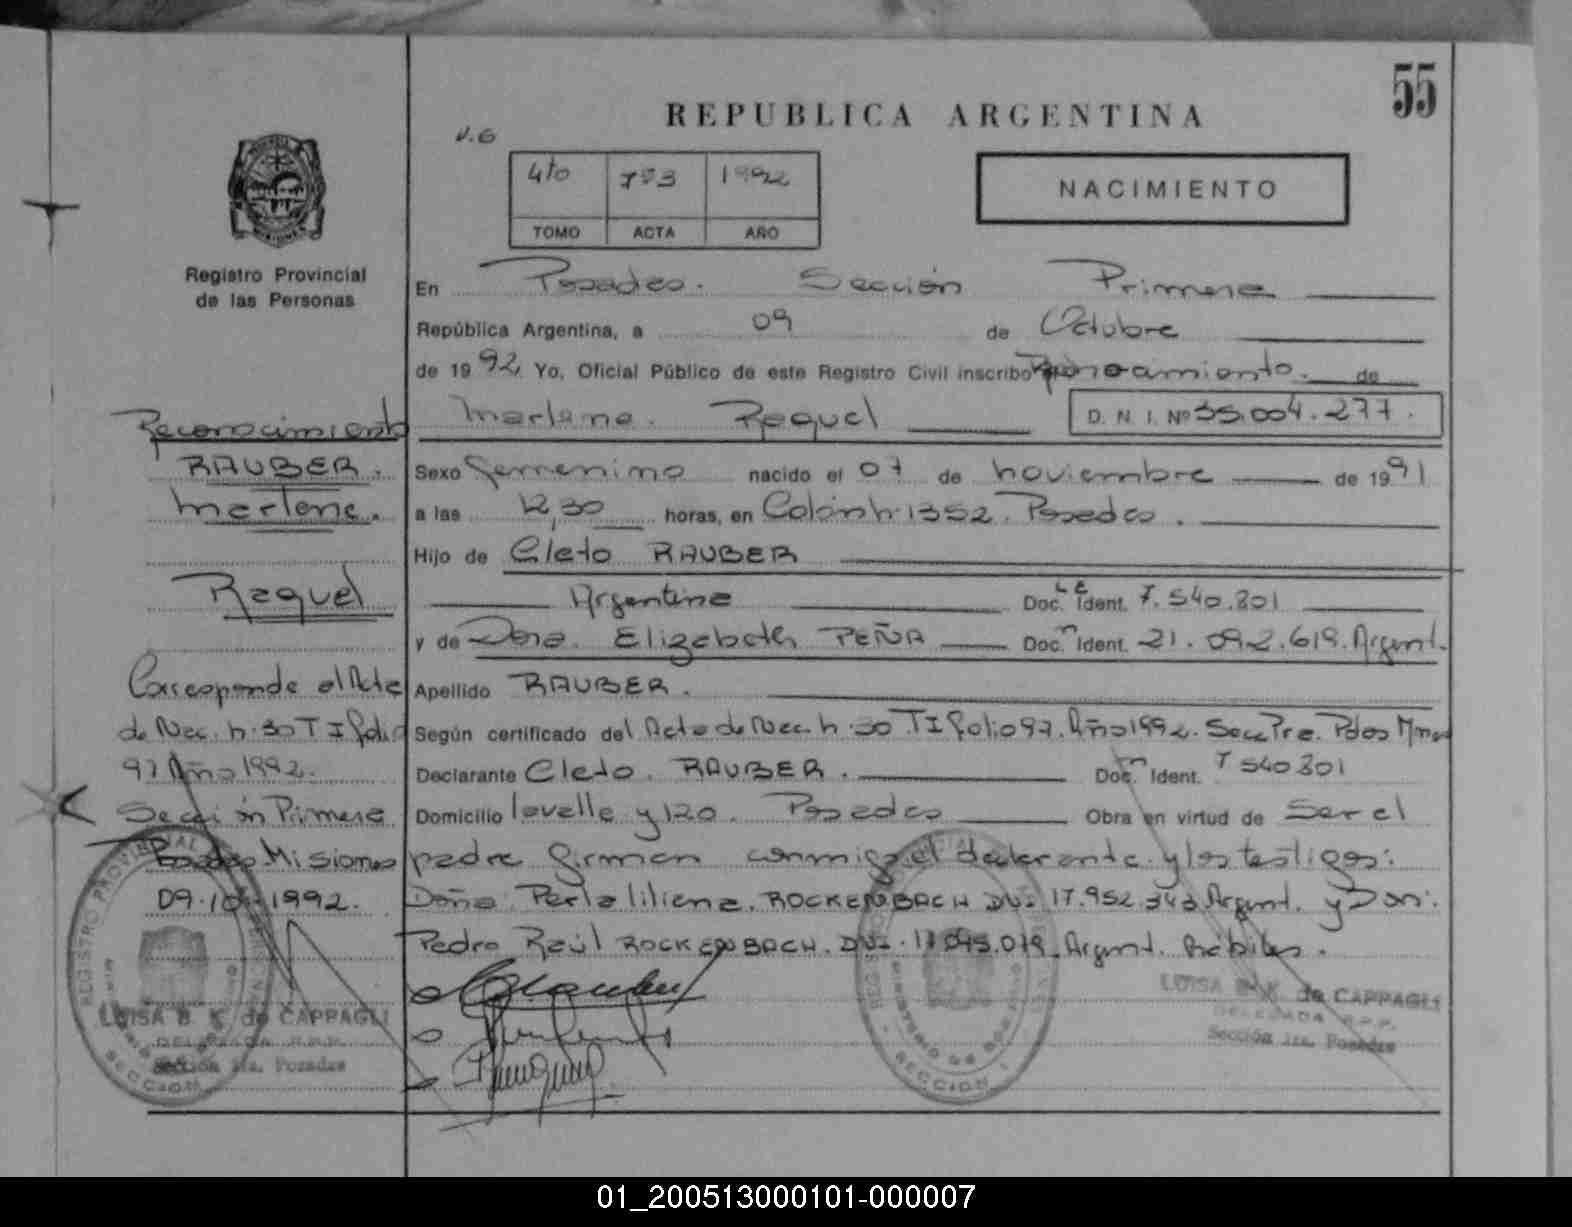 55
REPUBLICA ARGENTINA
V.6
4to 793 1992
TOMO ACTA AÑO
NACIMIENTO
Registro Provincial
de las Personas
En Posadas. Sección Primera
República Argentina, a 09 de Octubre
de 1992 Yo, Oficial Público de este Registro Civil inscribo de
Marlene. Raquel D. N. I. Nº 35.004.277.
Sexo femenino nacido el 07 de noviembre de 1991
a las 12,30 horas, en Colón n: 1352. Posadas.
Hijo de Cleto RAUBER
Argentina Doc. Ident. 7.540.801
y de Dona. Elizabeth PEÑA Doc. Ident. 21.092.619. Argent.
Apellido RAUBER.
Según certificado del Acta de Nac. n: 30 T I folio 97. Año 1992. Secc Pra. Pdas Mnes
Declarante Cleto. RAUBER. Doc. Ident. 7540801
Domicilio lavalle y 120. Posadas Obra en virtud de Ser el
padre firman conmigo el declarante y los testigos:
Doña: Perla liliana. ROCKENBACH DNI 17.952.343 Argent. y Don:
Pedro Raúl ROCKENBACH. DNI. Argent. Hábiles.
Reconocimiento
RAUBER.
Marlene.
Raquel
Corresponde al Acta
de Nac. n: 30 T I folio
97 Año 1992.
Sección Primera
Posadas Misiones
09.10.1992.
REGISTRO PROVINCIAL
SECCION
LUISA B. K. de CAPPAGLI
DELEGADA R.P.P.
Sección 1ra. Posadas
REGISTRO PROVINCIAL
MINISTERIO DE GOBIERNO
SECCION 1
LUISA B. K. de CAPPAGLI
DELEGADA R.P.P.
Sección 1ra. Posadas
01_200513000101-000007